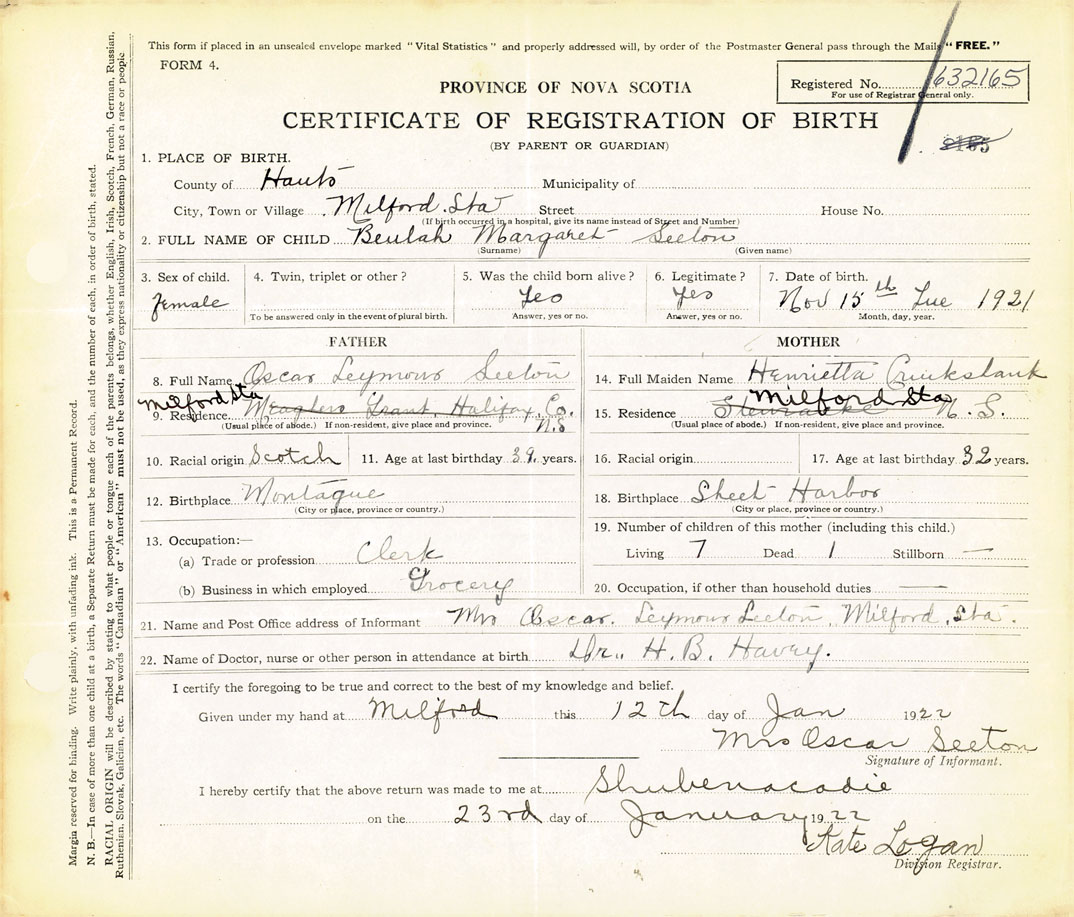 This form if placed in an unsealed envelope marked "Vital Statistics" and properly addressed will, by order of the Postmaster General pass through the Mails "FREE."
FORM 4.
Registered No. 1632165
For use of Registrar General only.
PROVINCE OF NOVA SCOTIA
CERTIFICATE OF REGISTRATION OF BIRTH
(BY PARENT OR GUARDIAN)
1. PLACE OF BIRTH.
County of Hants Municipality of
City, Town or Village Milford Sta Street House No.
(If birth occurred in a hospital, give its name instead of Street and Number)
2. FULL NAME OF CHILD Beulah Margaret Seeton
(Surname) (Given name)
3. Sex of child. 4. Twin, triplet or other? 5. Was the child born alive? 6. Legitimate? 7. Date of birth.
female Yes Yes Nov 15th Tue 1921
To be answered only in the event of plural birth. Answer, yes or no. Answer, yes or no. Month, day, year.
FATHER MOTHER
8. Full Name Oscar Seymour Seeton 14. Full Maiden Name Henrietta Cruikshank
Milford Sta Milford Sta
9. Residence Meaghers Grant, Halifax Co. N.S 15. Residence N.S.
(Usual place of abode.) If non-resident, give place and province. (Usual place of abode.) If non-resident, give place and province.
10. Racial origin Scotch 11. Age at last birthday 39 years. 16. Racial origin 17. Age at last birthday 32 years.
12. Birthplace Montague 18. Birthplace Sheet Harbor
(City or place, province or country.) (City or place, province or country.)
13. Occupation:— 19. Number of children of this mother (including this child.)
(a) Trade or profession Clerk Living 7 Dead 1 Stillborn —
(b) Business in which employed Grocery 20. Occupation, if other than household duties —
21. Name and Post Office address of Informant Mrs Oscar Seymour Seeton, Milford, Sta.
22. Name of Doctor, nurse or other person in attendance at birth Dr. H. B. Havey.
I certify the foregoing to be true and correct to the best of my knowledge and belief.
Given under my hand at Milford this 12th day of Jan 1922
Mrs Oscar Seeton
Signature of Informant.
I hereby certify that the above return was made to me at Shubenacadie
on the 23rd day of January 1922
Kate Logan
Division Registrar.
Margin reserved for binding. Write plainly, with unfading ink. This is a Permanent Record.
N. B.—In case of more than one child at a birth, a Separate Return must be made for each, and the number of each, in order of birth, stated.
RACIAL ORIGIN will be described by stating to what people or tongue each of the parents belongs, whether English, Irish, Scotch, French, German, Russian,
Ruthenian, Slovak, Galician, etc. The words "Canadian" or "American" must not be used, as they express nationality or citizenship but not a race or people.